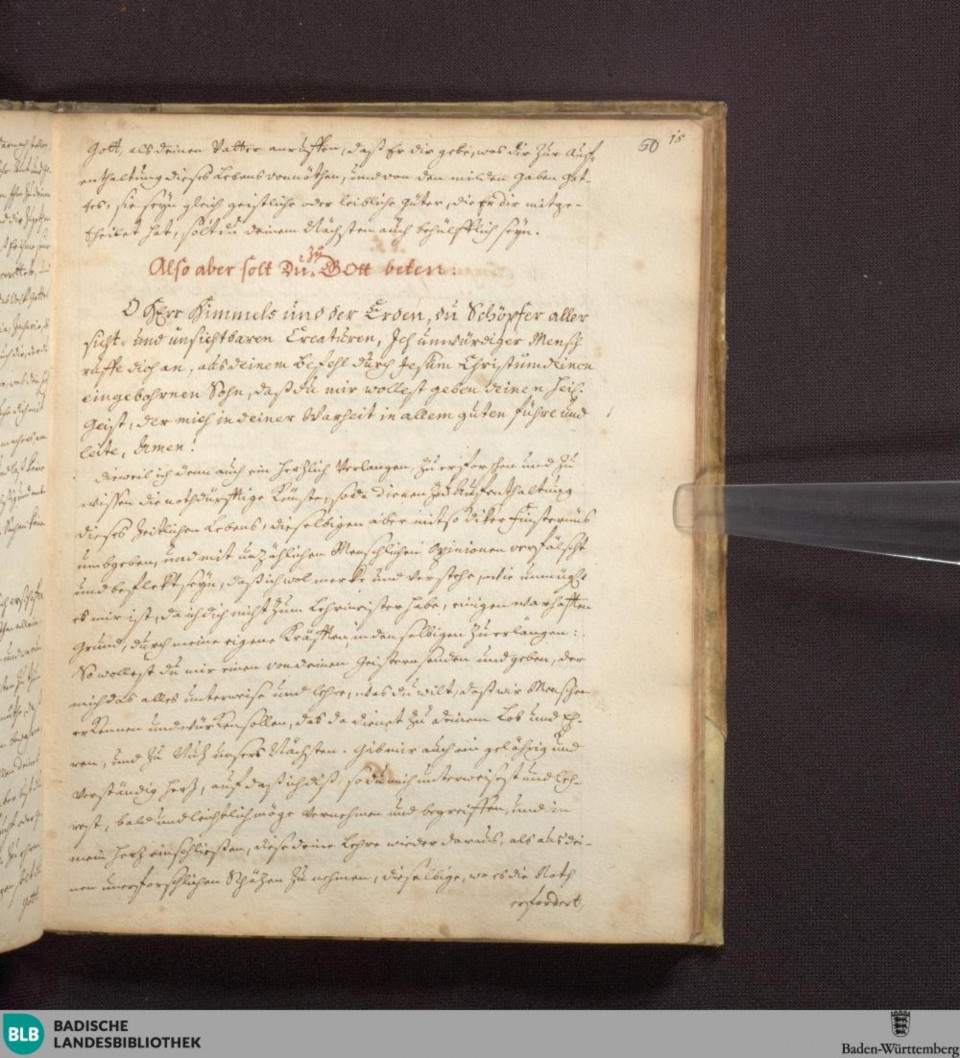 50 15
Gott, als deinen Vatter anruffen, daß Er dir gebe, was dir zur Auf-
enthaltung dieses Lebens vonnöthen, und von den milden Gaben Got-
tes, sie seyn gleich geistliche oder leibliche Güter, die Er dir mitge-
theilet hat, solt du deinem Nächsten auch behülfflich seyn.
Also aber solt Du zu GOtt beten:
O HErr Himmels und der Erden, du Schöpfer aller
sicht- und unsichtbaren Creaturen, Ich unwürdiger Mensch
ruffe dich an, aus deinem Befehl durch Jesum Christum deinen
eingebohrnen Sohn, daß du mir wollest geben deinen Heil.
Geist, der mich in deiner Warheit in allem guten führe und
leite, Amen!
Dieweil ich denn auch ein hertzlich Verlangen, zu erforschen und zu
wissen die nothdürfftige Künste, so da dienen zu Aufenthaltung
dieses zeitlichen Lebens, dieselbigen aber mit so dicker Finsternüs
umbgeben, und mit unzählichen Menschlichen Opinionen verfälscht
und befleckt seyn, daß ich wol mercke und verstehe, wie unmügl.
es mir ist, da ich dich nicht zum Lehrmeister habe, einigen warhafften
Grund, durch meine eigene Kräfften, in den selbigen zu erlangen:
So wollest du mir einen von deinen Geistern senden und geben, der
mich das alles unterweise und lehre, was du wilt, daß wir Menschen
erkennen und würken sollen, das da dienet zu deinem Lob und Eh-
ren, und zu Nutz unsers Nächsten. Gib mir auch ein gelährig und
verständig Hertz, auf daß ich diß, so du mich unterweisest und leh-
rest, bald und leichtlich möge vernehmen und begreiffen, und in
mein Hertz einschliessen, diese deine Lehre wieder daraus, als aus dei-
nen unerforschlichen Schätzen zu nehmen, dieselbige, wo es die Noth
erfordert,
BLB
BADISCHE
LANDESBIBLIOTHEK
Baden-Württemberg